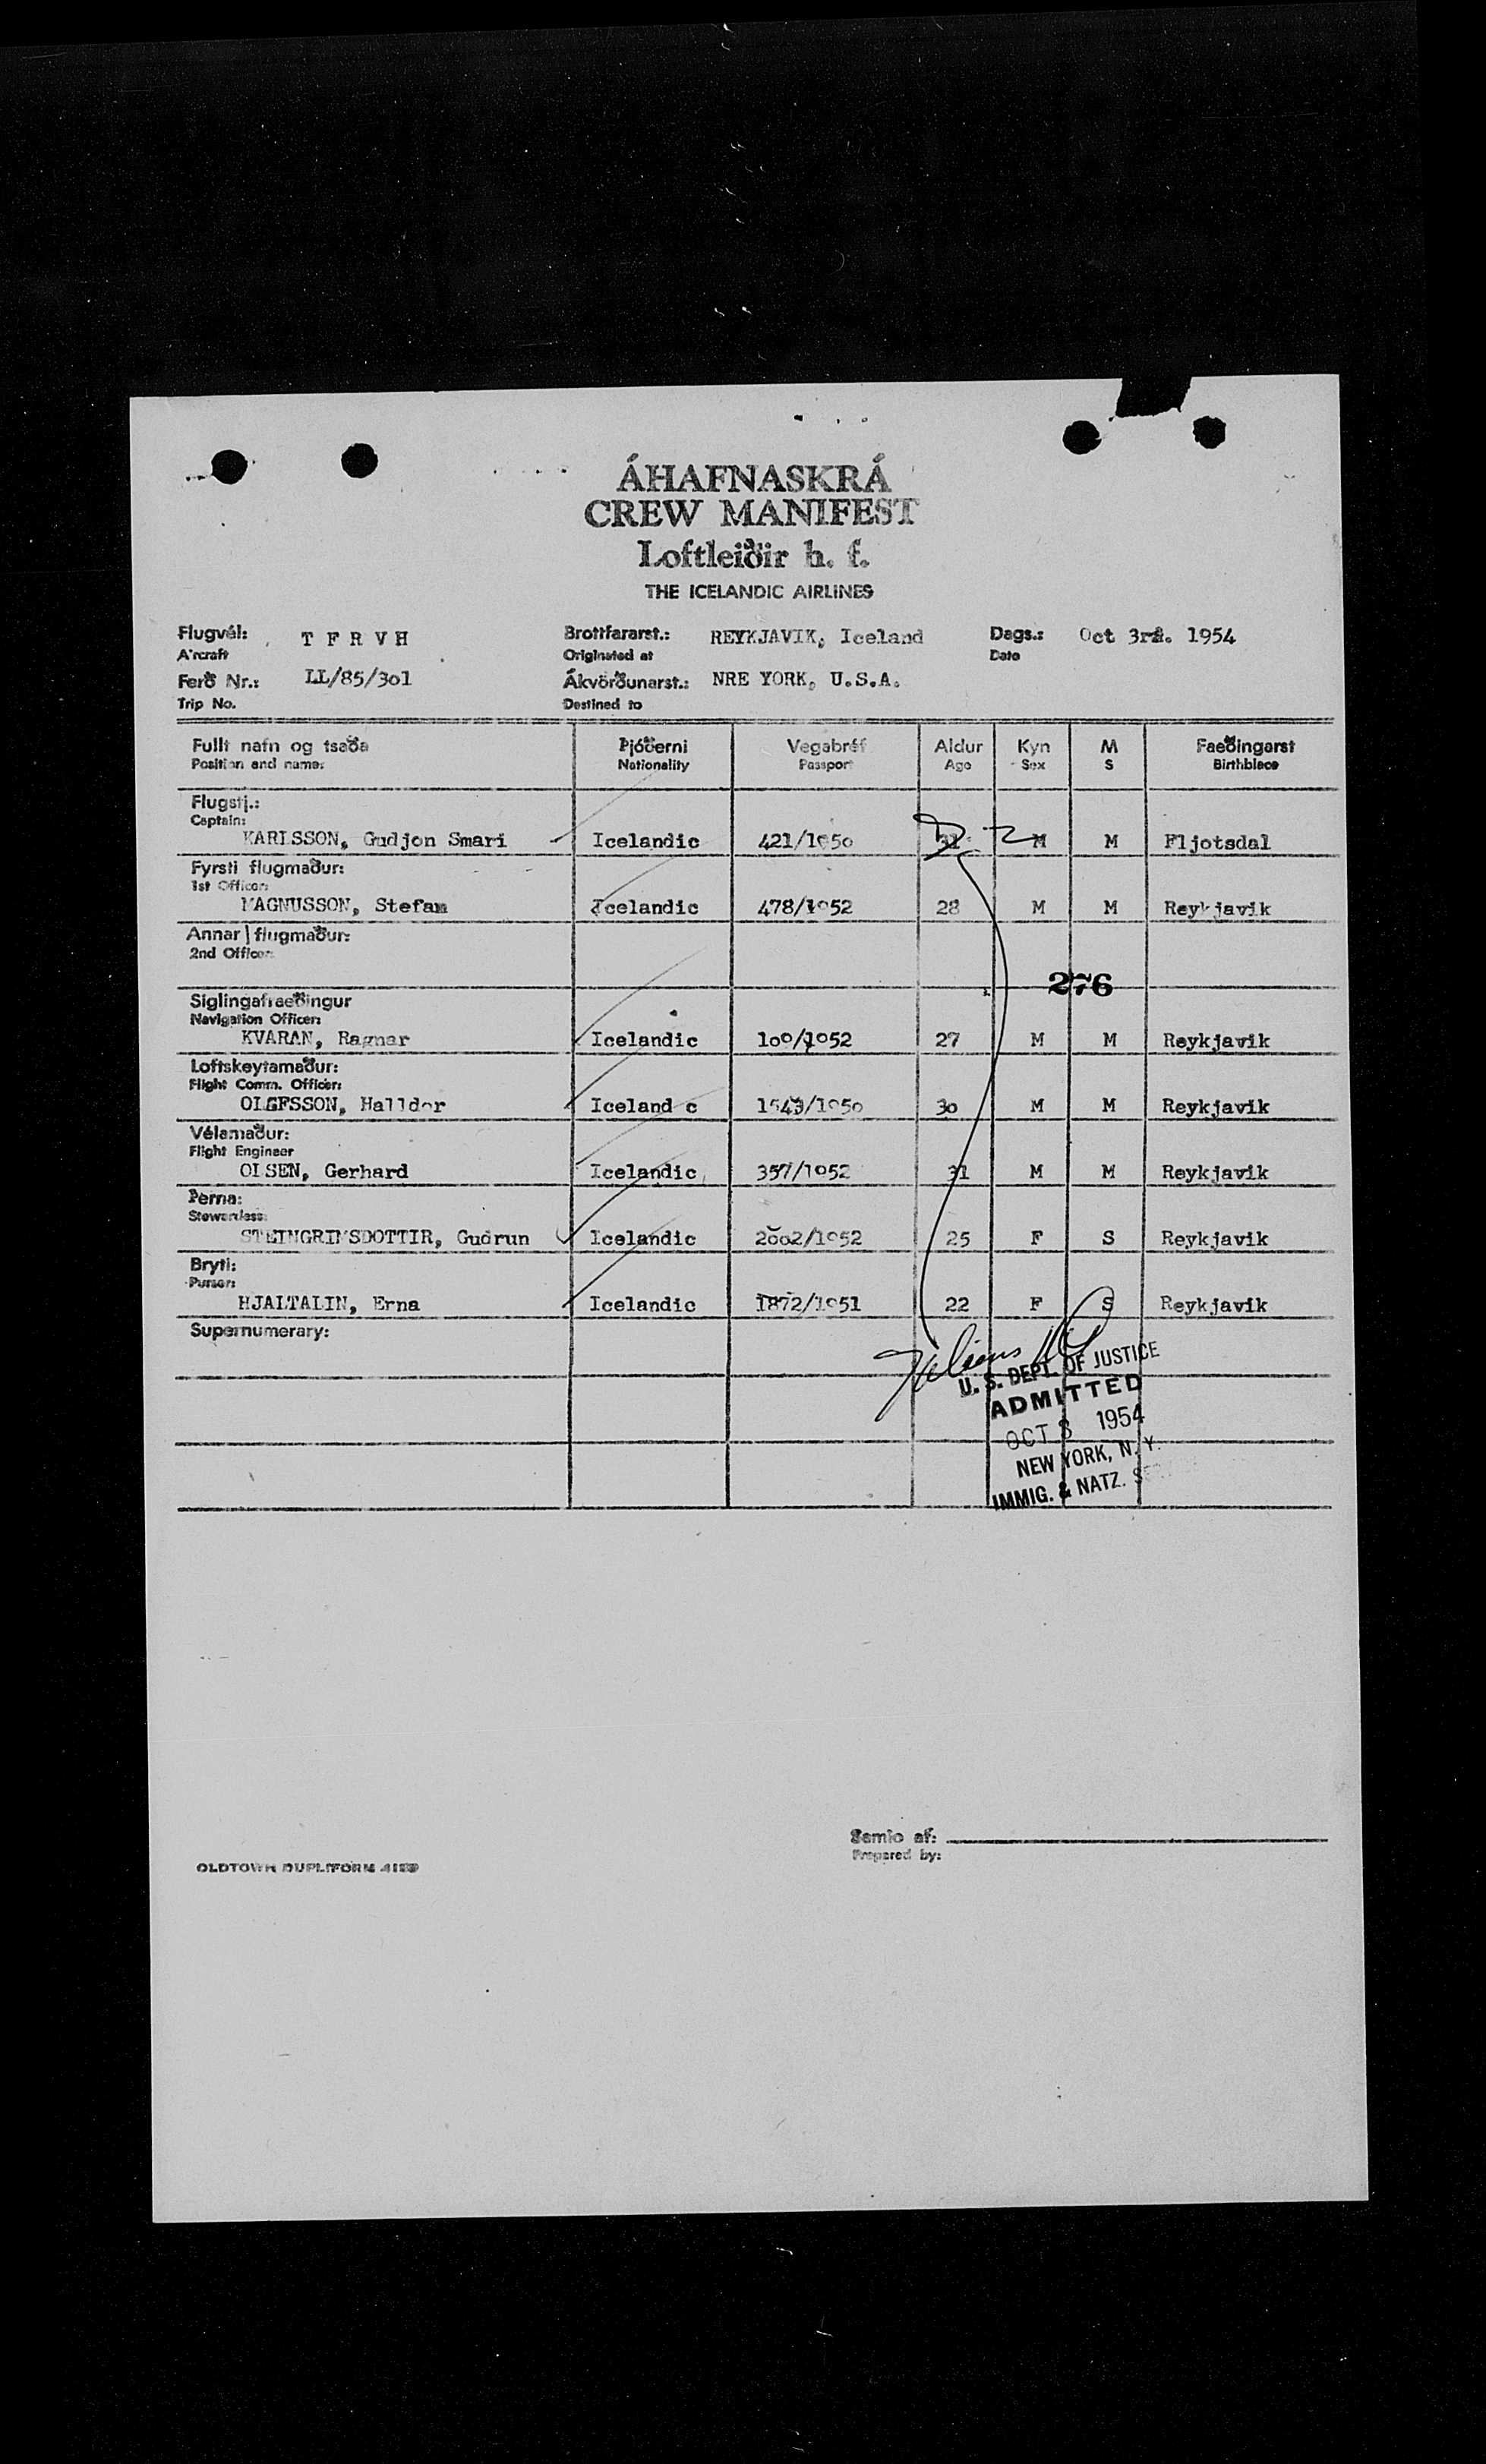 ÁHAFNASKRÁ
CREW MANIFEST
Loftleiðir h. f.
THE ICELANDIC AIRLINES
Flugvél: T F R V H Brottfararst.: REYKJAVIK, Iceland Dags.: Oct 3rd. 1954
Aircraft Originated at Date
Ferð Nr.: LL/85/3o1 Ákvörðunarst.: NRE YORK, U.S.A.
Trip No. Destined to
Fullt nafn og tsaða Þjóðerni Vegabréf Aldur Kyn M Faeðingarst
Position and name: Nationality Passport Age Sex S Birthblace
Flugstj.:
Captain:
KARLSSON, Gudjon Smari Icelandic 421/195o 31 M M Fljotsdal
Fyrsti flugmaður:
1st Officer:
MAGNUSSON, Stefan Icelandic 478/1952 28 M M Reykjavik
Annar flugmaður:
2nd Officer:
276
Siglingafraeðingur
Navigation Officer:
KVARAN, Ragnar Icelandic 1oo/1952 27 M M Reykjavik
Loftskeytamaður:
Flight Comm. Officer:
OLGFSSON, Halldor Iceland c /195o 3o M M Reykjavik
Vélamaður:
Flight Engineer
OLSEN, Gerhard Icelandic 357/1952 31 M M Reykjavik
Þerna:
Stewardess:
STEINGRIMSDOTTIR, Gudrun Icelandic 2oo2/1952 25 F S Reykjavik
Bryti:
Purser:
HJALTALIN, Erna Icelandic 1872/1951 22 F S Reykjavik
Supernumerary:
U. S. DEPT. OF JUSTICE
ADMITTED
OCT 3 1954
NEW YORK, N. Y.
IMMIG. & NATZ.
Samio af:
Prepared by:
OLDTOWN DUPLIFORM